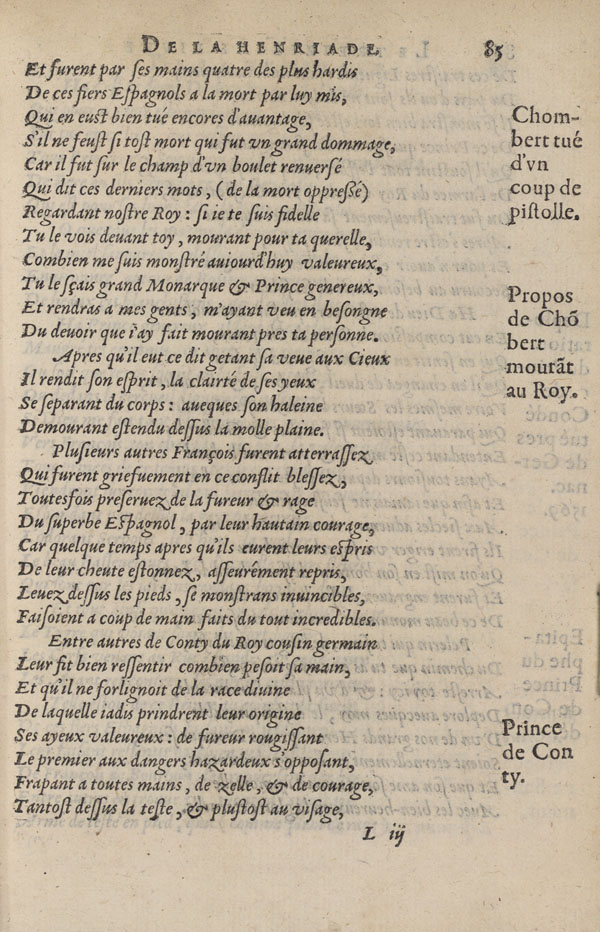 DE LA HENRIADE. 85
Et furent par ses mains quatre des plus hardis
De ces fiers Espagnols a la mort par luy mis,
Qui en eust bien tué encores d'auantage,
S'il ne feust si tost mort qui fut vn grand dommage,
Car il fut sur le champ d'vn boulet renuersé
Qui dit ces derniers mots, (de la mort oppressé)
Regardant nostre Roy : si ie te suis fidelle
Tu le vois deuant toy, mourant pour ta querelle,
Combien me suis monstré auiourd'huy valeureux,
Tu le sçais grand Monarque & Prince genereux,
Et rendras a mes gents, m'ayant veu en besongne
Du deuoir que i'ay fait mourant pres ta personne.
Apres qu'il eut ce dit getant sa veue aux Cieux
Il rendit son esprit, la clairté de ses yeux
Se separant du corps : auecques son haleine
Demourant estendu dessus la molle plaine.
Plusieurs autres François furent atterrassez
Qui furent griefuement en ce conflit blessez,
Toutesfois preseruez de la fureur & rage
Du superbe Espagnol, par leur hautain courage,
Car quelque temps apres qu'ils eurent leurs espris
De leur cheute estonnez, asseurément repris,
Leuez dessus les pieds, se monstrans inuincibles,
Faisoient a coup de main faits du tout incredibles.
Entre autres de Conty du Roy cousin germain
Leur fit bien ressentir combien pesoit sa main,
Et qu'il ne forlignoit de la race diuine
De laquelle iadis prindrent leur origine
Ses ayeux valeureux : de fureur rougissant
Le premier aux dangers hazardeux s'opposant,
Frapant a toutes mains, de zelle, & de courage,
Tantost dessus la teste, & plustost au visage,
L iij
Chom-
bert tué
d'vn
coup de
pistolle.
Propos
de Chõ
bert
mourãt
au Roy.
Prince
de Con
ty.